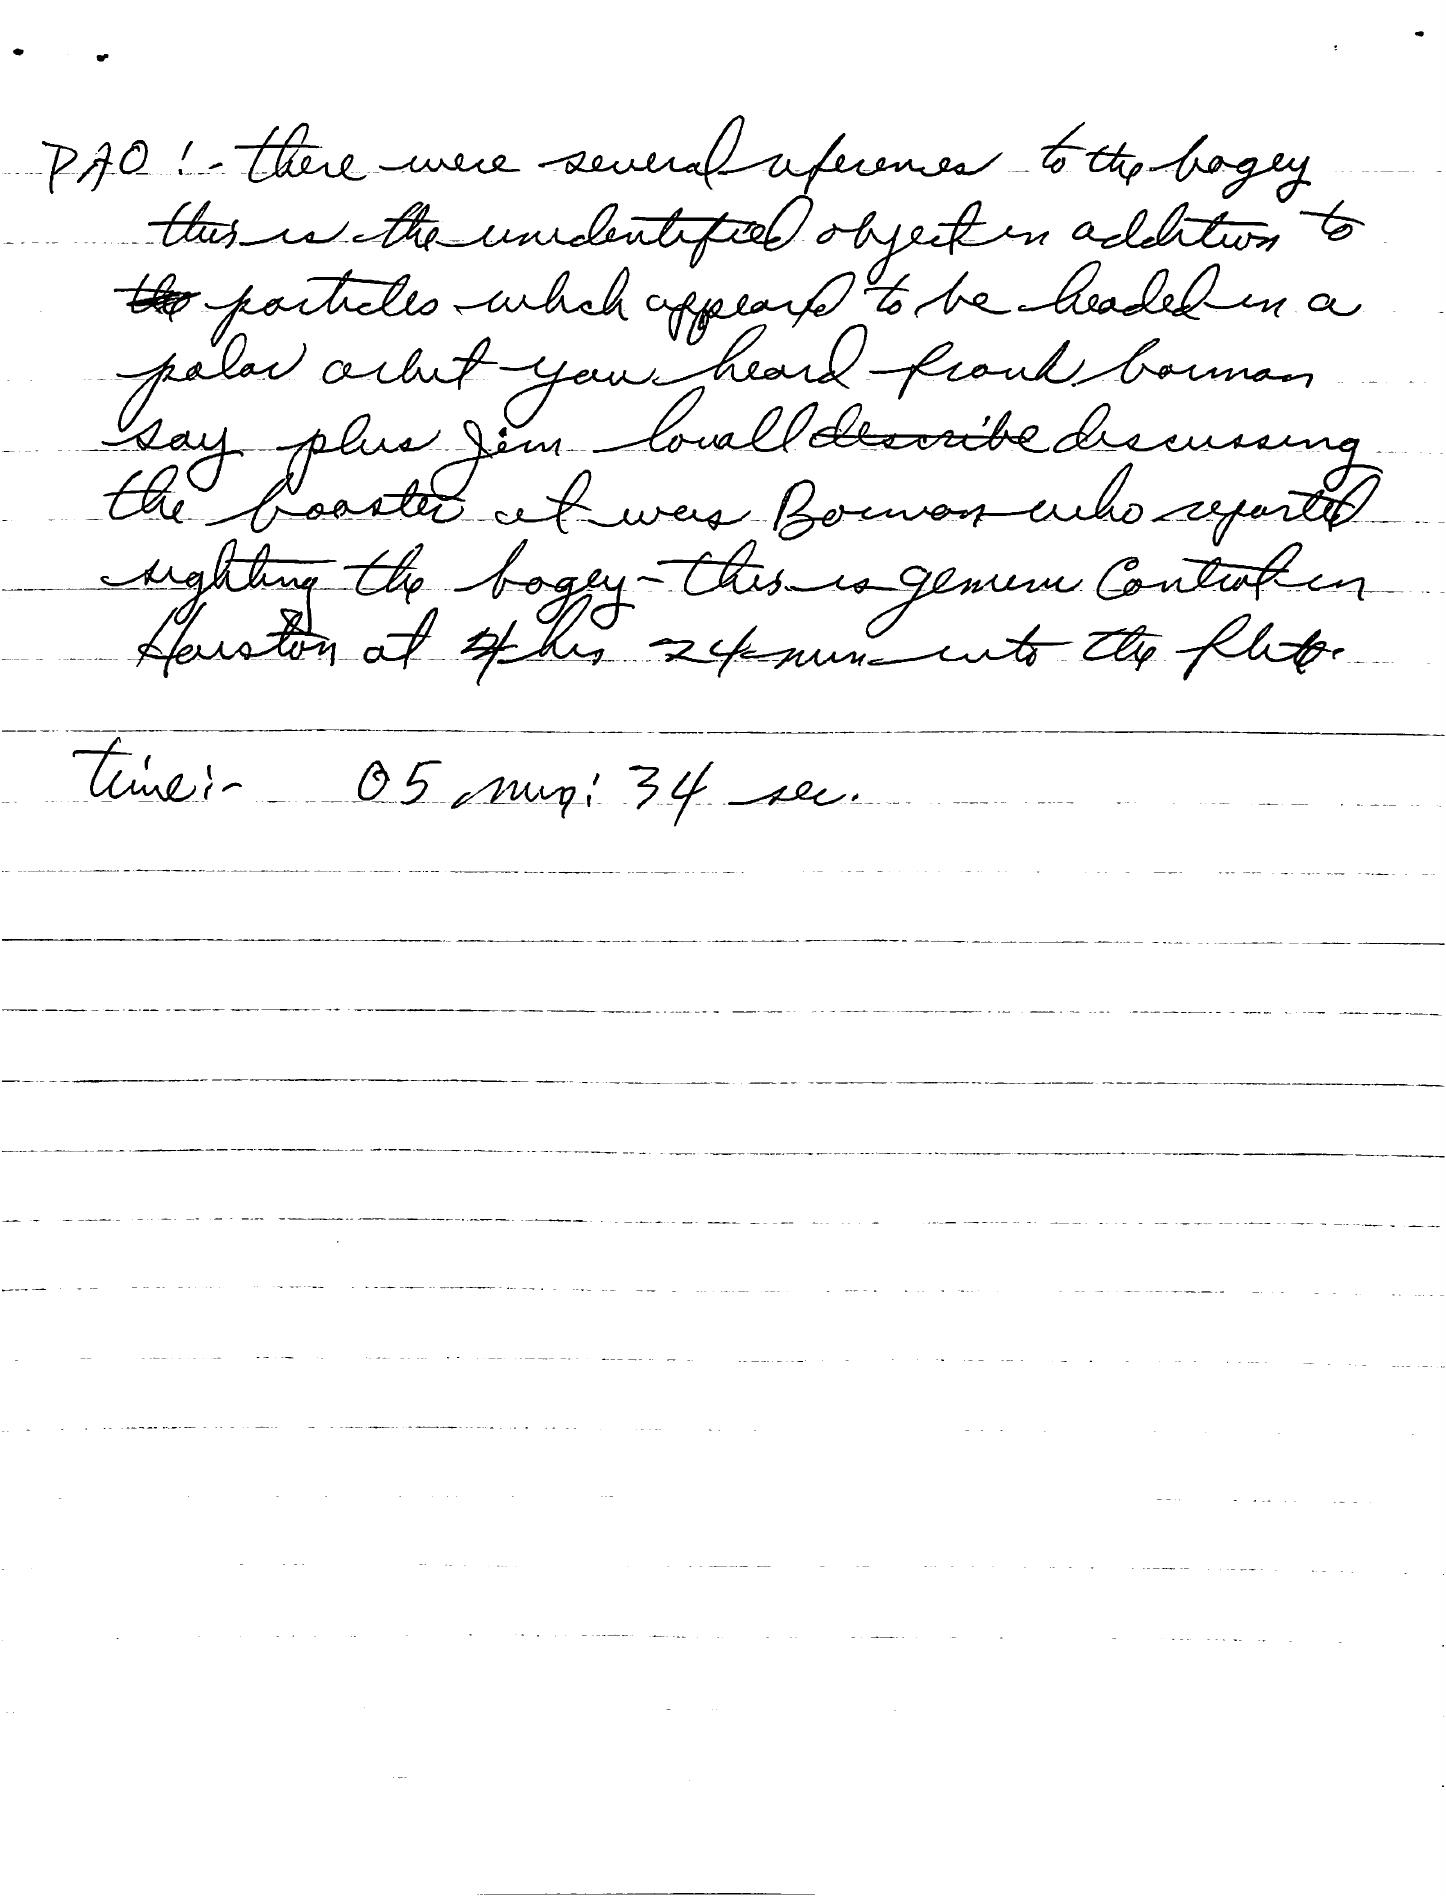 PAO:- there were several references to the bogey
this is the unidentified object in addition to
the particles which appeard to be headed in a
polar orbit you heard frank borman
say plus Jim lovall describe discussing
the booster it was Borman who reported
sighting the bogey - this is gemini Control in
Houston at 4 hrs 24 min into the flite.
time:- 05 min: 34 sec.